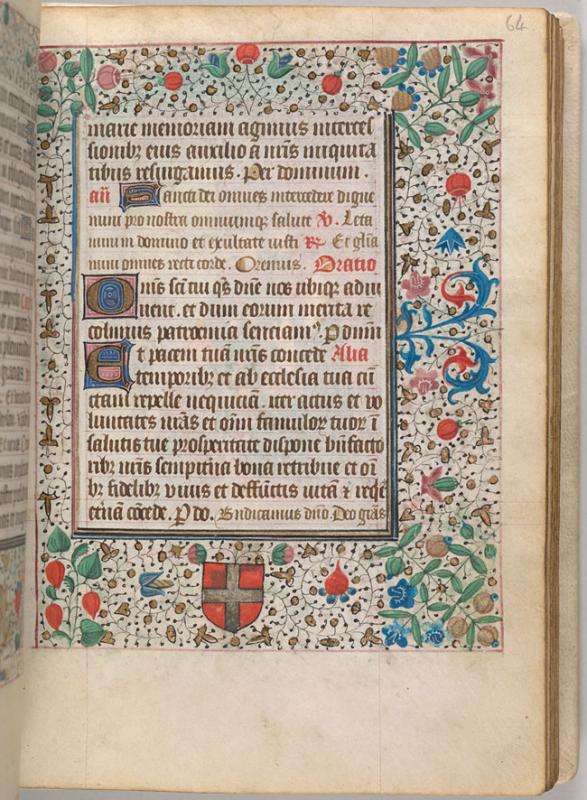 64
marie memoriam agimus interces
sionibȝ eius auxilio a nr̄is iniquita
tibus resurgamus. Per dominum.
an̄ Sancti dei omnes intercedere digne
mini pro nostra omniumqȝ salute V. Leta
mini in domino et exultate iusti R Et gl̄ia
mini omnes recti corde. Oremus. Oratio
Om̄s sc̄i tui qs̄ dn̄e nos ubiqȝ adiu
uent. et dum eorum merita re
colimus patrocinia senciamꝰ. P dn̄m
Et pacem tuā nr̄is concede Alia
temporibȝ et ab ecclesia tua cū
ctam repelle nequiciā. iter actus et vo
luntates nr̄as et om̄i famulor tuor ī
salutis tue prosperitate dispone bn̄facto
ribȝ nr̄is sempit̄na bona retribue et oī
bȝ fidelibȝ viuis et deffūctis vitā ⁊ reqē
et̄nā cōcede. P do. Bn̄dicamus dn̄o Deo gr̄as